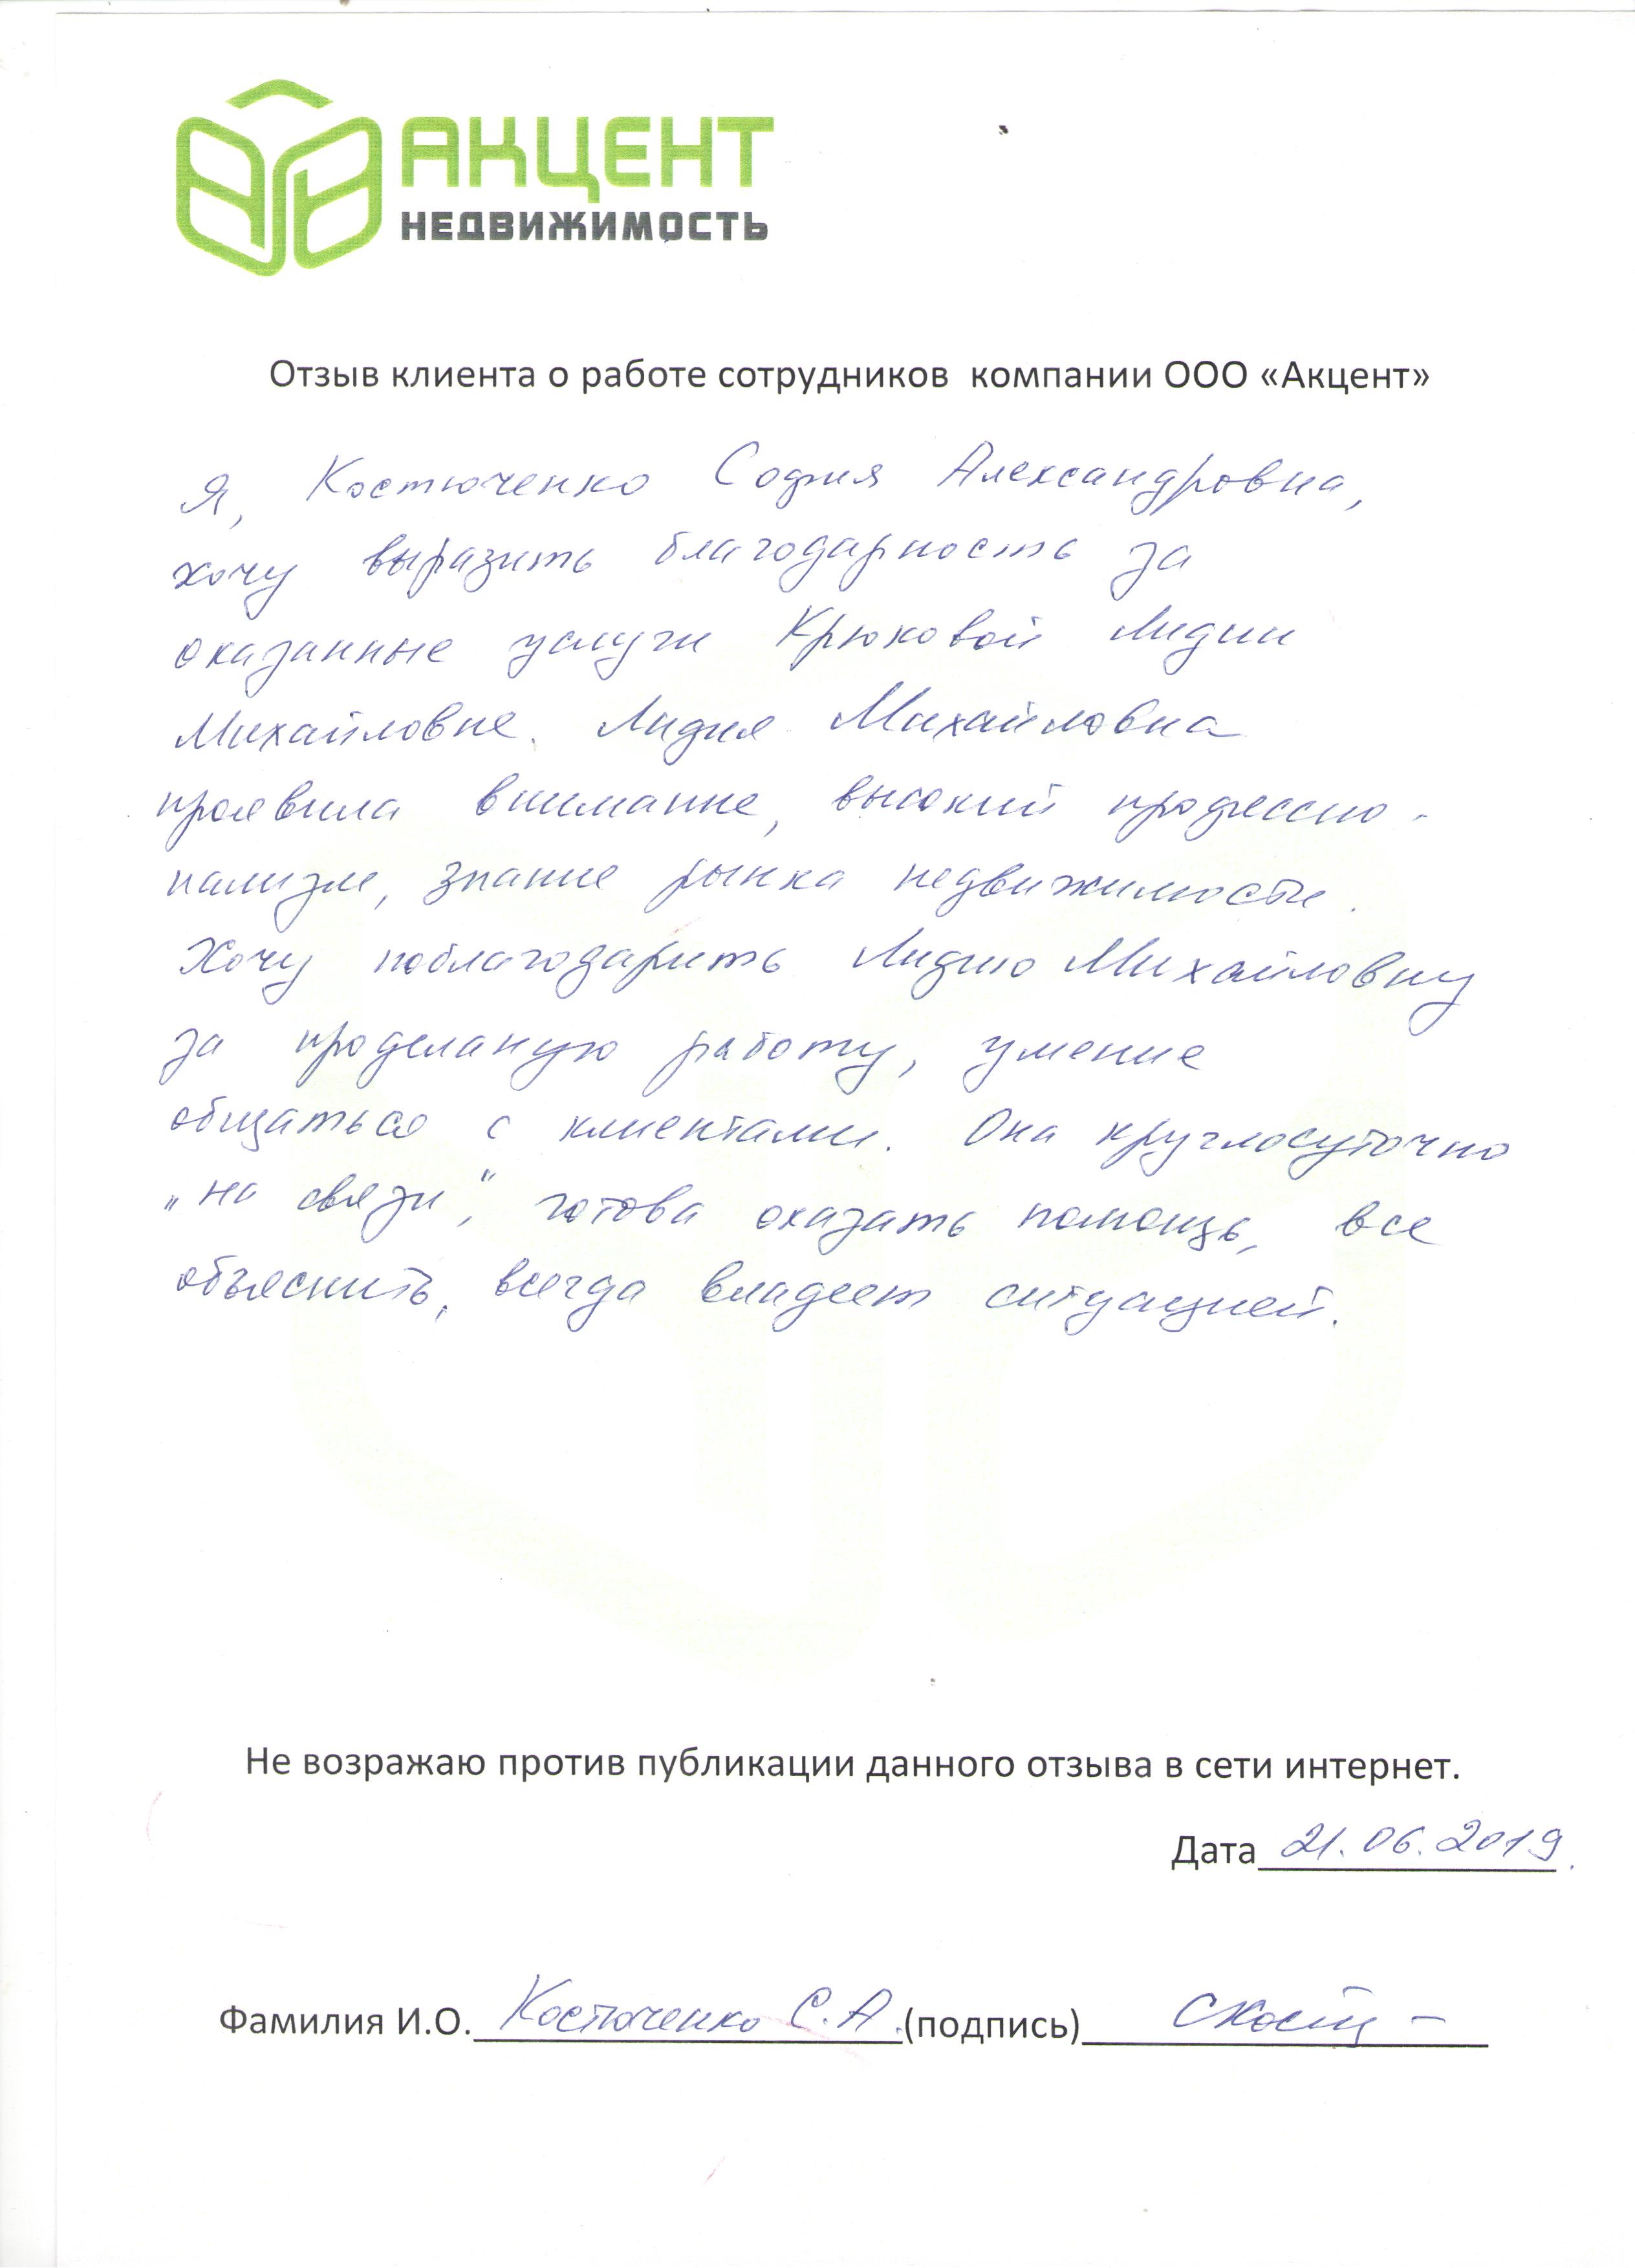 АКЦЕНТ
НЕДВИЖИМОСТЬ
Отзыв клиента о работе сотрудников компании ООО «Акцент»
Я, Костюченко София Александровна,
хочу выразить благодарность за
оказанные услуги Крюковой Лидии
Михайловне. Лидия Михайловна
проявила внимание, высокий профессио-
нализм, знание рынка недвижимости.
Хочу поблагодарить Лидию Михайловну
за проделаную работу, умение
общаться с клиентами. Она круглосуточно
„на связи", готова оказать помощь, все
объяснить, всегда владеет ситуацией.
Не возражаю против публикации данного отзыва в сети интернет.
Дата 21.06.2019.
Фамилия И.О. Костюченко С.А. (подпись)